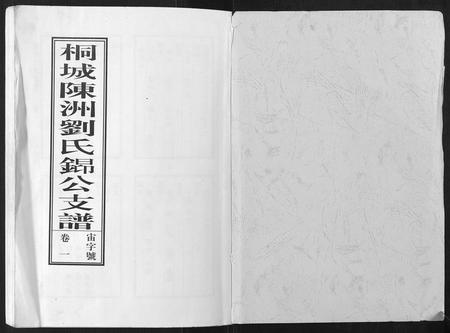 桐城陳洲劉氏錦公支譜
宙字號
卷一